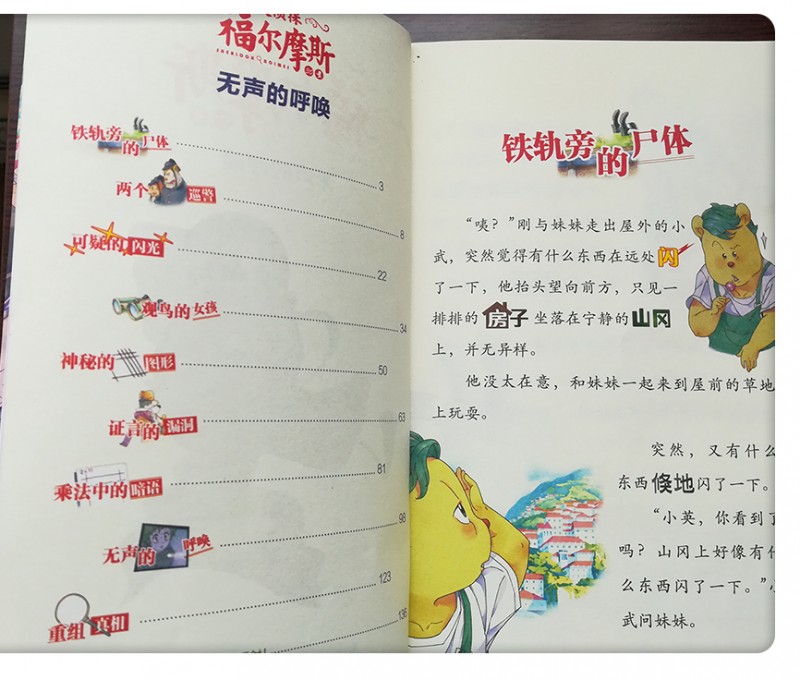 福尔摩斯
SHERLOCK HOLMES
无声的呼唤
铁轨旁的尸体 3
两个巡警 8
可疑的闪光 22
观鸟的女孩 34
神秘的图形 50
证言的漏洞 63
乘法中的暗语 81
无声的呼唤 98
重组真相 123
136
铁轨旁的尸体
“咦？”刚与妹妹走出屋外的小
武，突然觉得有什么东西在远处闪
了一下，他抬头望向前方，只见一
排排的房子坐落在宁静的山冈
上，并无异样。
他没太在意，和妹妹一起来到屋前的草地
上玩耍。
突然，又有什么
东西倏地闪了一下。
“小英，你看到了
吗？山冈上好像有什
么东西闪了一下。”小
武问妹妹。